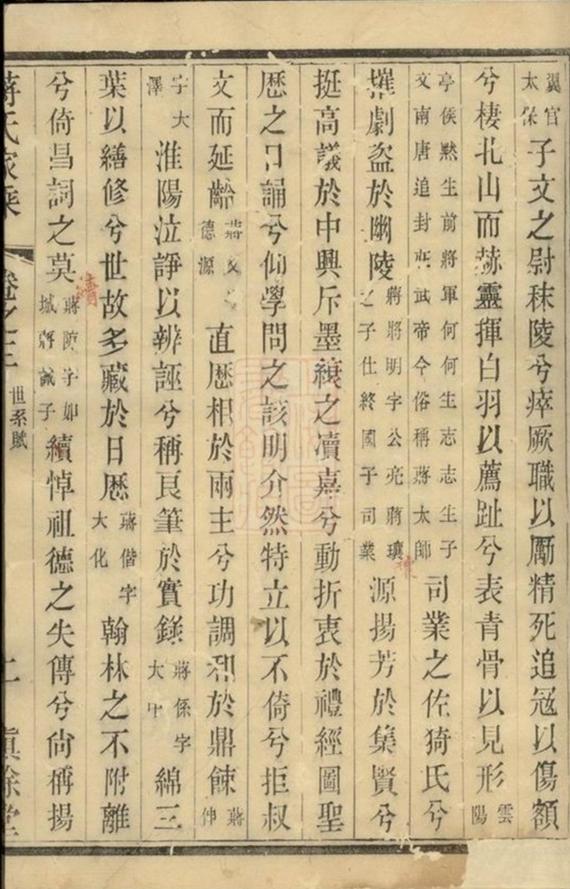 翼官太保子文之尉秣陵兮瘁厥職以勵精死追冦以傷額
兮棲北山而赫靈揮白羽以薦趾兮表青骨以見形雲陽
亭侯黙生前將軍何何生志志生子文南唐追封武帝今俗稱蔣太師司業之佐猗氏兮
劇盜於幽陵蔣將明字公亮蔣瓌之子仕終國子司業源揚芳於集賢兮
挺高議於中興斥墨縗之凟嘉兮動折衷於禮經圖聖
歷之口誦兮仰學問之該明介然特立以不倚兮拒叔
文而延齡蔣德源直歷相於兩主兮功調於鼎餗蔣伸
字大澤淮陽泣諍以辨誣兮稱良筆於實錄蔣係字大綿三
葉以繕修兮世故多藏於日歷蔣偕字大化翰林之不附離
兮倚昌詞之莫蔣防字如城蔣誠子續悼祖德之失傳兮尙稱揚
蔣氏家乘
卷之三
世系賦
二
慎餘堂